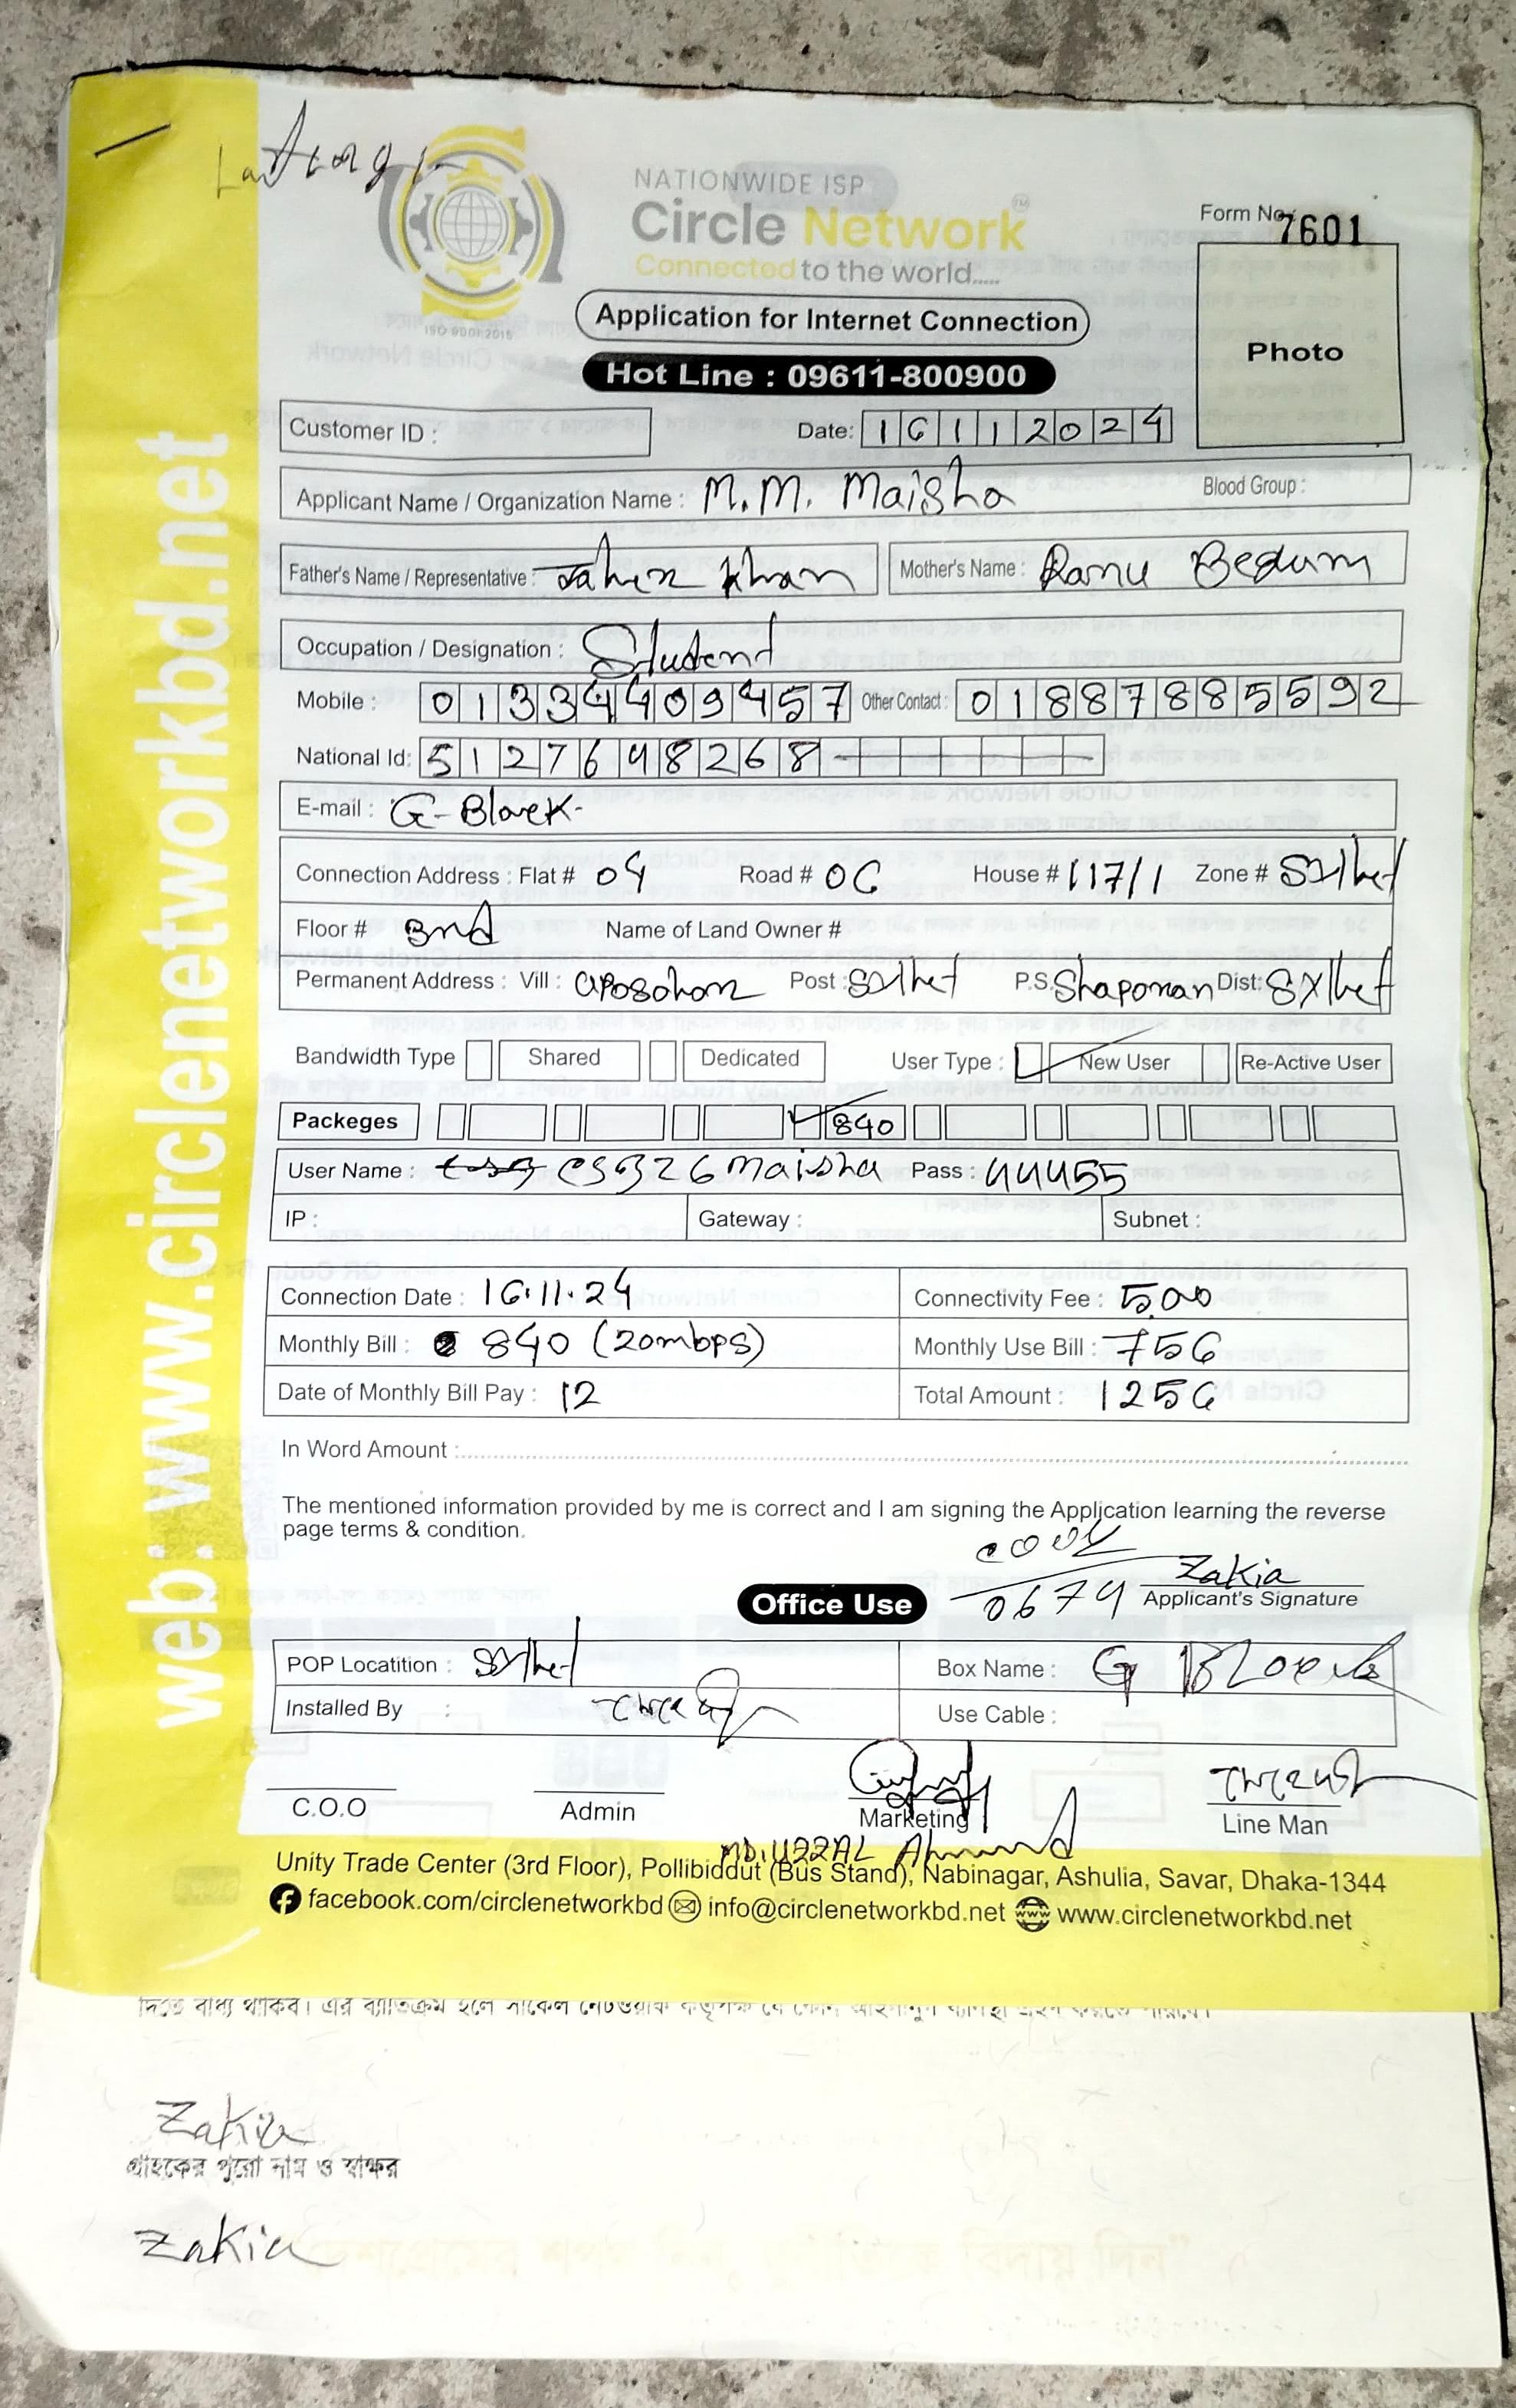 NATIONWIDE ISP
Circle Network™
Connected to the world.....
ISO 9001:2015
Form No. 7601
Photo
Application for Internet Connection
Hot Line : 09611-800900
Customer ID :
Date: 16112024
Applicant Name / Organization Name : M.M. Maisha Blood Group :
Father's Name / Representative : Taher Khan Mother's Name : Ranu Begum
Occupation / Designation : Student
Mobile : 01334409457 Other Contact : 01887885592
National Id: 5127698268
E-mail : G-Block-
Connection Address : Flat # 04 Road # 06 House # 117/1 Zone # Sylhet
Floor # 3rd Name of Land Owner #
Permanent Address : Vill : Uposohor Post : Sylhet P.S. Shaporan Dist: Sylhet
Bandwidth Type Shared Dedicated User Type : New User Re-Active User
Packeges 840
User Name : CSB26Maisha Pass : 44455
IP : Gateway : Subnet :
Connection Date : 16.11.24 Connectivity Fee : 500
Monthly Bill : 840 (20mbps) Monthly Use Bill : 756
Date of Monthly Bill Pay : 12 Total Amount : 1256
In Word Amount :
The mentioned information provided by me is correct and I am signing the Application learning the reverse
page terms & condition.
Zakia
Office Use 0674 Applicant's Signature
POP Locatition : Sylhet Box Name : G Block
Installed By : Use Cable :
C.O.O Admin Marketing Line Man
MD. UZZAL Ahmed
Unity Trade Center (3rd Floor), Pollibiddut (Bus Stand), Nabinagar, Ashulia, Savar, Dhaka-1344
facebook.com/circlenetworkbd info@circlenetworkbd.net www www.circlenetworkbd.net
web: www.circlenetworkbd.net
দিতে বাধ্য থাকিব। এর ব্যতিক্রম হলে সার্কেল নেটওয়ার্ক কর্তৃপক্ষ যে কোন আইনানুগ ব্যবস্থা গ্রহণ করতে পারবে।
Zakia
গ্রাহকের পুরো নাম ও স্বাক্ষর
Zakia